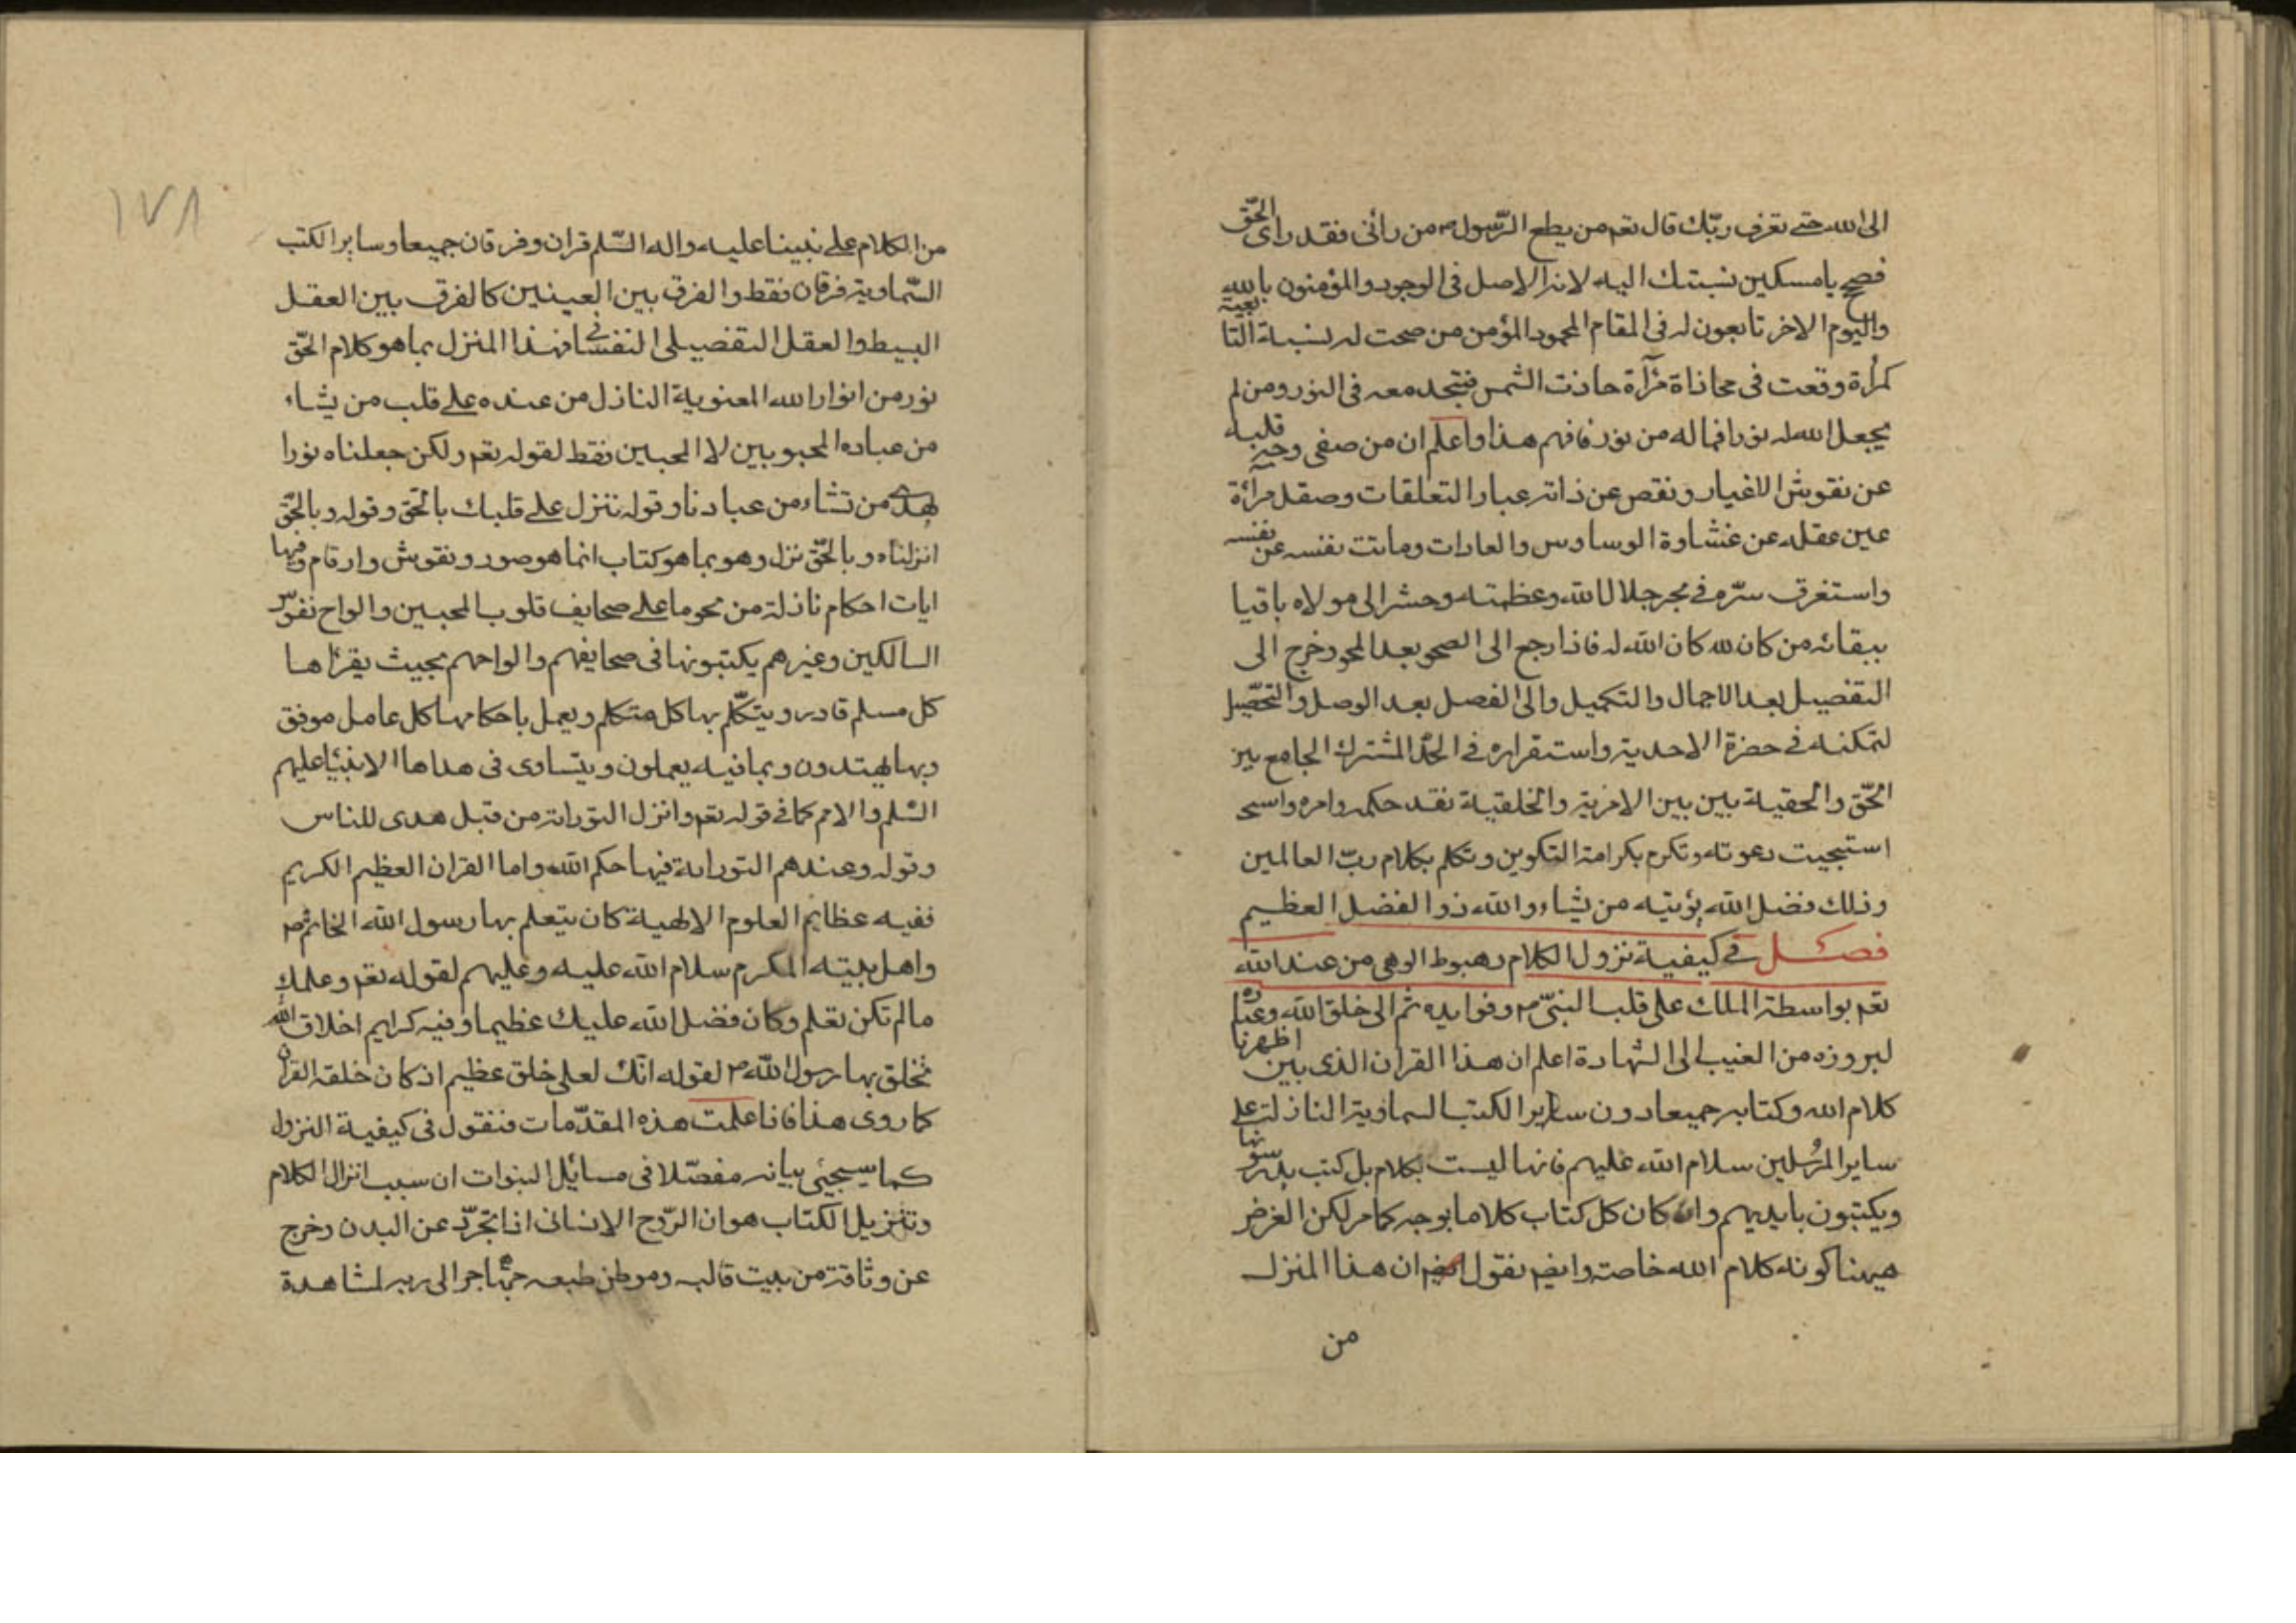 الى الله حتى تعرف ربّك قال تعم من يطع الرّسول م من رأنى فقد راى الحقّ
فصحح يا مسكين نسبتك اليه لانه الاصل فى الوجود والمؤمنون بالله
واليوم الاخر تابعون له فى المقام المحمود المؤمن من صحت له نسبة التابعية
كمرأة وقعت فى محاذاة مرآة حاذت الشمس فيتحد معه فى النور ومن لم
يجعل الله له نورا فما له من نور فافهم هذا واعلم ان من صفى وجه قلبه
عن نقوش الاغيار ونفض عن ذاته غبار التعلقات وصقل مرآة
عين عقله عن غشاوة الوساوس والعادات وماتت نفسه عن نفسه
واستغرق سرّه فى بحر جلال الله وعظمته وحشر الى مولاه باقيا
ببقائه من كان لله كان الله له فاذا رجع الى الصحو بعد المحو وخرج الى
التفصيل بعد الاجمال والتكميل والى الفصل بعد الوصل والتحصيل
لتمكنه فى حضرة الاحدية واستقراره فى الحدّ المشترك الجامع بين
الحقّ والحقية بين بين الامرية والخلقية نفد حكمه وامره واسبح
استبجيت دعوته وتكرم بكرامة التكوين وتكلم بكلام ربّ العالمين
وذلك فضل الله يؤتيه من يشاء والله ذو الفضل العظيم
فصل فى كيفية نزول الكلام وهبوط الوحى من عند الله
تعم بواسطة الملك على قلب النبىّ م وفوايده ثم الى خلق الله وعباده
لبروزه من الغيب الى الشهادة اعلم ان هذا القران الذى بين اظهرنا
كلام الله وكتابه جميعا دون ساير الكتب السماوية النازلة على
ساير المرسلين سلام الله عليهم فانها ليست بكلام بل كتب يدرسونها
ويكتبون بايديهم وان كان كل كتاب كلاما بوجه كما مر لكن الغرض
هيهنا كونه كلام الله خاصة وايضم نقول ان هذا المنزل
من
١٧٨
من الكلام على نبينا عليه واله السّلم قران وفرقان جميعا وساير الكتب
السّماوية فرقان فقط والفرق بين العينين كالفرق بين العقل
البسيط والعقل التفصيلى النفسانى فهذا المنزل بما هو كلام الحقّ
نور من انوار الله المعنوية النازل من عنده على قلب من يشاء
من عباده المحبوبين لا المحبين فقط لقوله تعم ولكن جعلناه نورا
نهدى من نشاء من عبادنا وقوله نزل على قلبك بالحقّ وقوله وبالحقّ
انزلناه وبالحقّ نزل وهو بما هو كتاب انما هو صور ونقوش وارقام وفيها
ايات احكام نازلة من نحو ما على صحايف قلوب المحبين والواح نفوس
السالكين وغيرهم يكتبونها فى صحايفهم والواحهم بحيث يقرأها
كل مسلم قادر ويتكلّم بها كل متكلم ويعمل باحكامها كل عامل موفق
وبها يهتدون وبما فيه يعملون ويتساوى فى هداها الانبياء عليهم
السّلم والامم كما فى قوله تعم وانزل التوراة من قبل هدى للناس
وقوله وعندهم التوراية فيها حكم الله واما القران العظيم الكريم
ففيه عظايم العلوم الالهية كان يتعلم بها رسول الله الخاتم م
واهل بيته المكرم سلام الله عليه وعليهم لقوله تعم وعلمك
ما لم تكن تعلم وكان فضل الله عليك عظيما وفيه كرايم اخلاق الله
تخلق بها رسول الله م لقوله انّك لعلى خلق عظيم اذ كان خلقه القران
كما روى هذا فاذا علمت هذه المقدّمات فنقول فى كيفية النزول
كما سيجيئ بيانه مفصّلا فى مسائل النبوات ان سبب انزال الكلام
وتنزيل الكتاب هو ان الرّوح الانسانى اذا تجرّد عن البدن وخرج
عن وثاقته من بيت قالبه وموطن طبعه مهاجرا الى ربه لمشاهدة